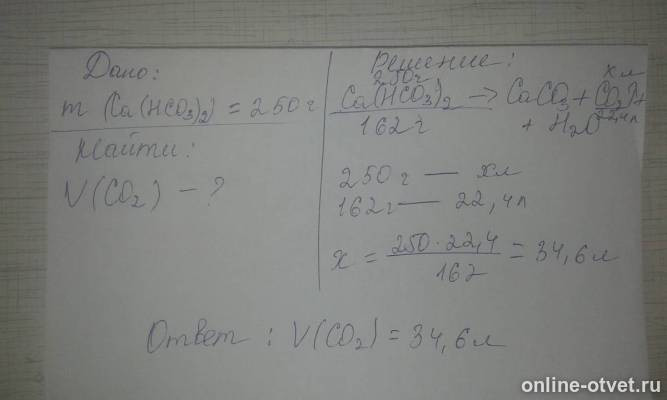 Дано:
m (Ca(HCO₃)₂) = 250 г
Найти:
V(CO₂) – ?
Решение:
250г
x л
Ca(HCO₃)₂ → CaCO₃ + CO₂↑ +
162 г
22,4л
+ H₂O
250 г — xл
162г — 22,4л
x = 250 · 22,4 / 162 = 34,6 л
Ответ : V(CO₂) = 34,6 л
online-otvet.ru